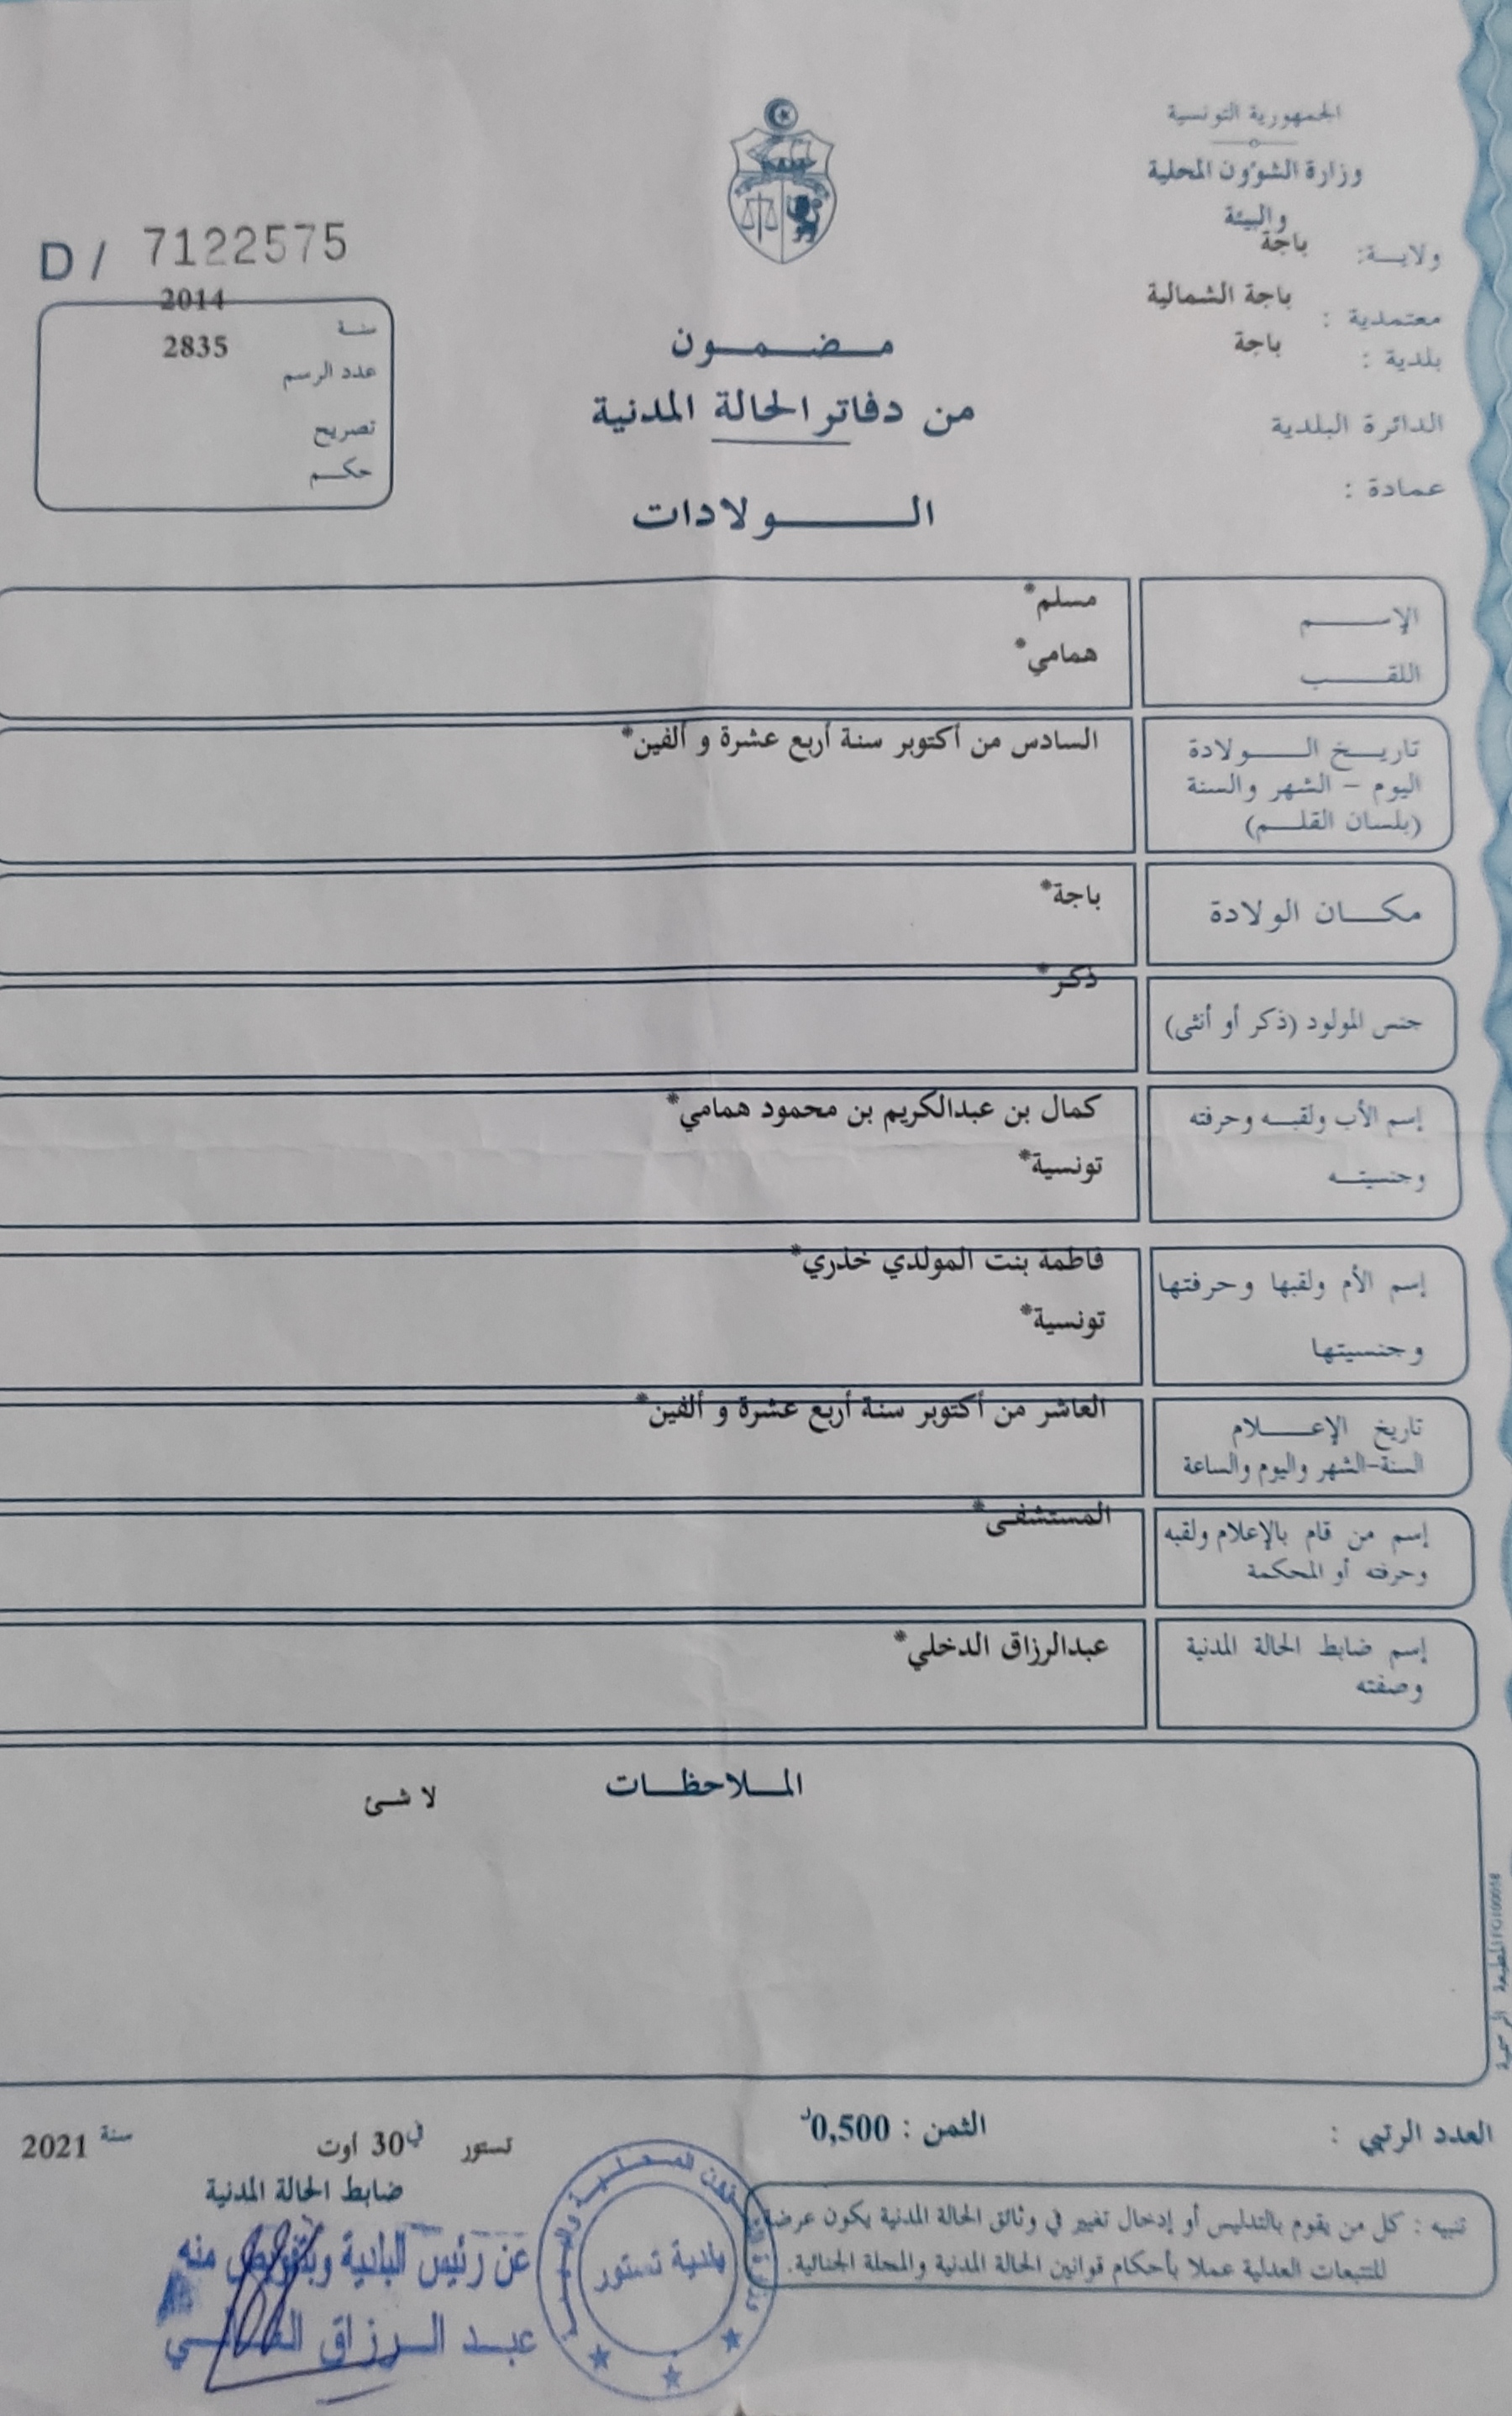 الجمهورية التونسية
وزارة الشؤون المحلية
والبيئة
ولايــة: باجة
معتمدية : باجة الشمالية
بلدية : باجة
الدائرة البلدية
عمادة :
D / 7122575
سنة 2014
عدد الرسم 2835
تصريح
حكم
مضمون
من دفاتر الحالة المدنية
الولادات
الإسم مسلم*
اللقب همامي*
تاريخ الولادة السادس من أكتوبر سنة أربع عشرة و ألفين*
اليوم – الشهر والسنة
(بلسان القلم)
مكان الولادة باجة*
جنس المولود (ذكر أو أنثى) ذكر*
إسم الأب ولقبه وحرفته كمال بن عبدالكريم بن محمود همامي*
وجنسيته تونسية*
إسم الأم ولقبها وحرفتها فاطمة بنت المولدي خذري*
وجنسيتها تونسية*
تاريخ الإعلام العاشر من أكتوبر سنة أربع عشرة و ألفين*
السنة-الشهر واليوم والساعة
إسم من قام بالإعلام ولقبه المستشفى*
وحرفته أو المحكمة
إسم ضابط الحالة المدنية عبدالرزاق الدخلي*
وصفته
الملاحظات
لا شئ
المطبعة الرسمية
العدد الرتبي :
الثمن : 0,500د
تستور في 30 اوت سنة 2021
ضابط الحالة المدنية
عن رئيس البلدية وبتفويض منه
عبد الرزاق
بلدية تستور
تنبيه : كل من يقوم بالتدليس أو إدخال تغيير في وثائق الحالة المدنية يكون عرضة
للتتبعات العدلية عملا بأحكام قوانين الحالة المدنية والمجلة الجنائية.